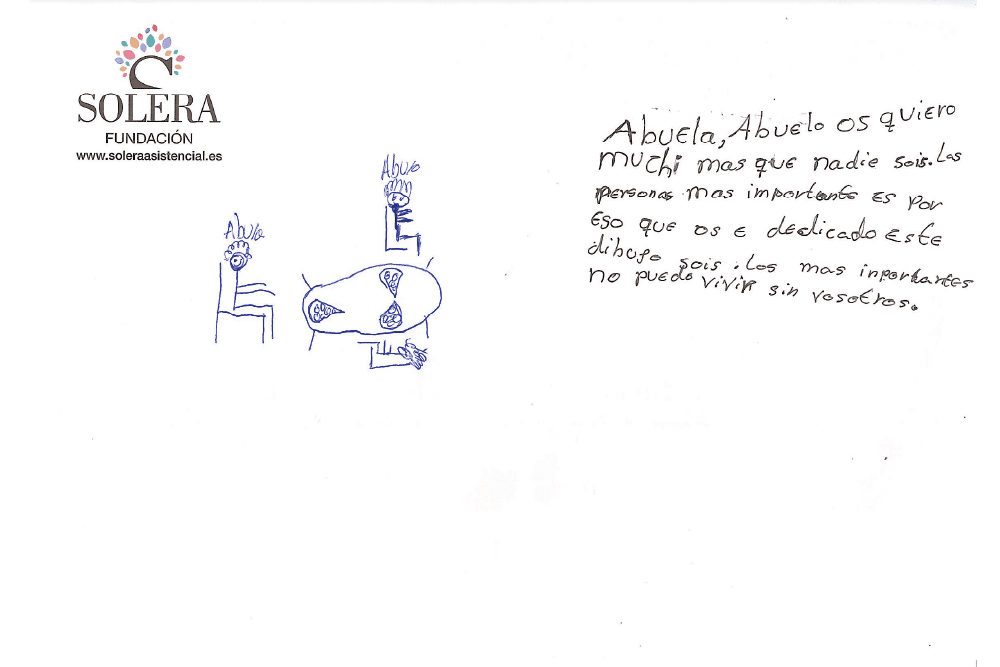 SOLERA
FUNDACIÓN
www.soleraasistencial.es
Abuelo
Abuela
Abuela, Abuelo os quiero
muchi mas que nadie sois. Las
personas mas importante es por
eso que os e dedicado este
dibujo sois. Los mas inportantes
no puedo vivir sin vosotros.